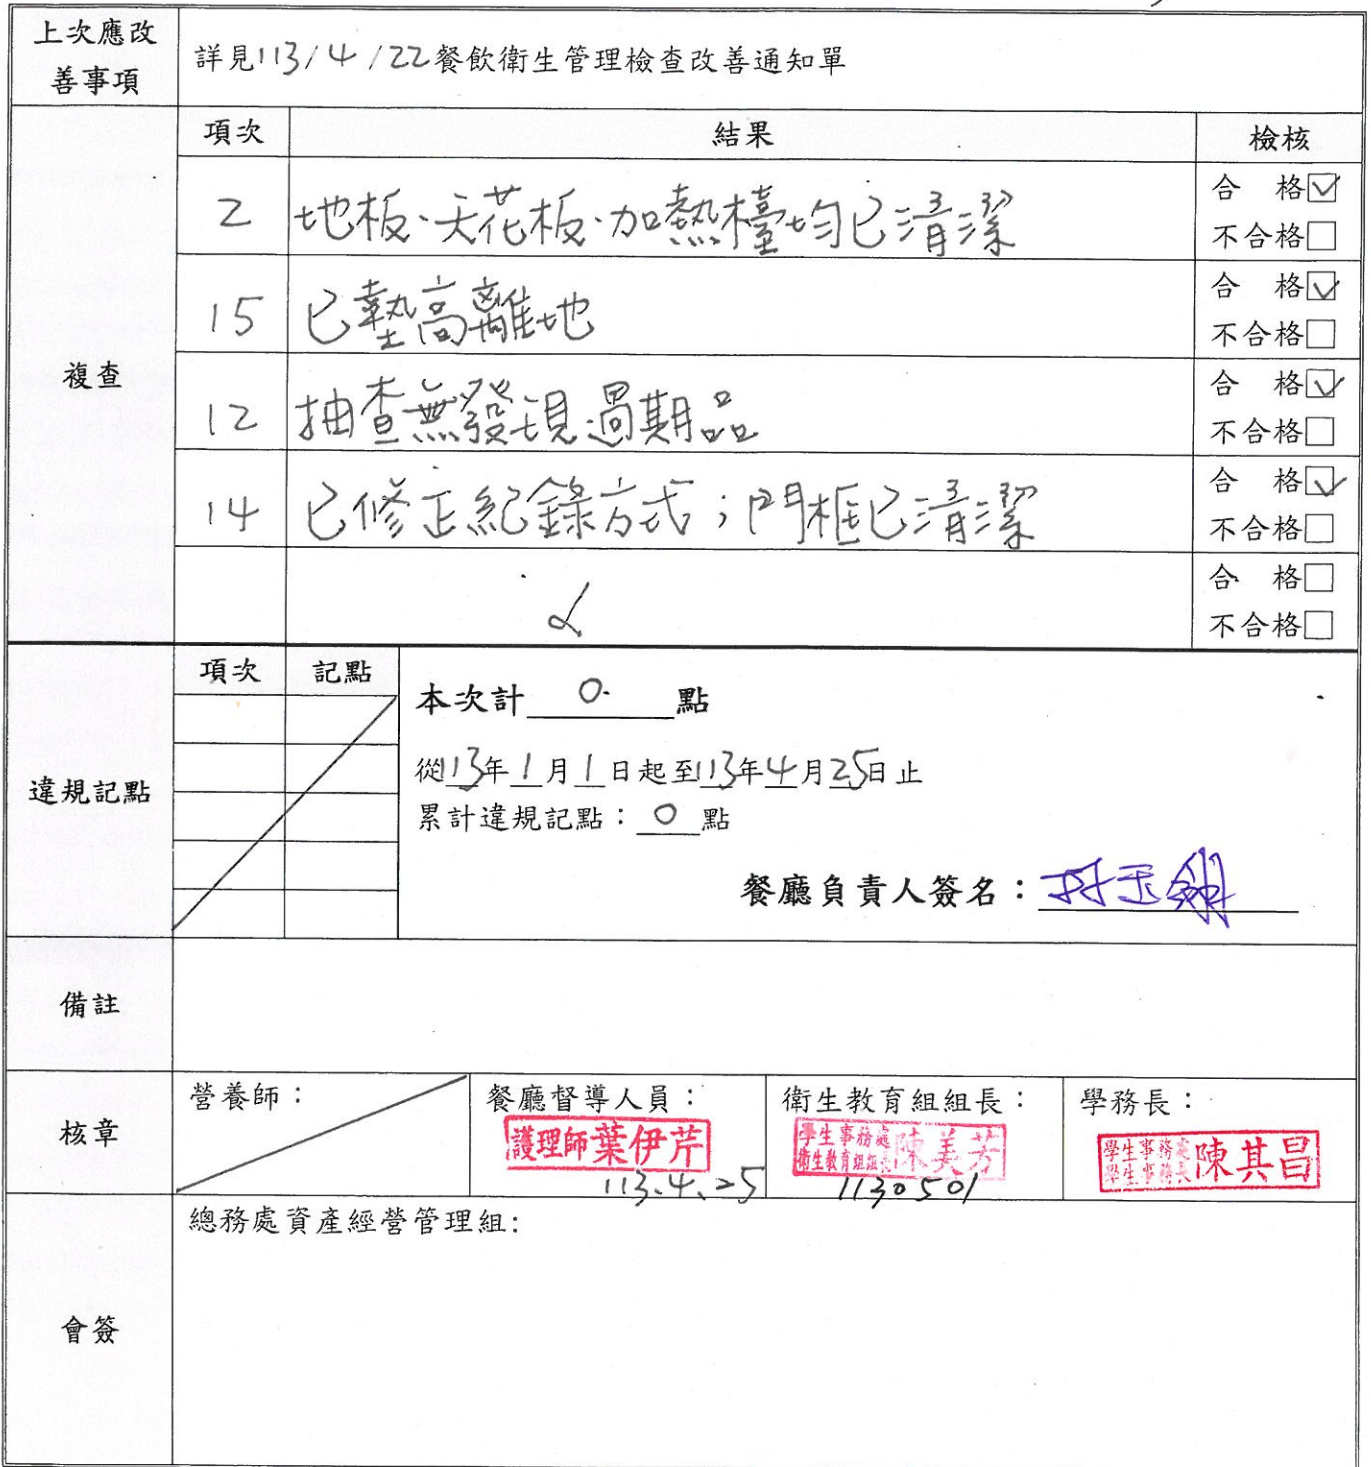 上次應改
善事項
詳見113/4/22餐飲衛生管理檢查改善通知單
複查
項次 結果 檢核
2 地板、天花板、加熱檯均已清潔 合 格☑
不合格☐
15 已墊高離地 合 格☑
不合格☐
12 抽查無發現過期品 合 格☑
不合格☐
14 已修正紀錄方式；門框已清潔 合 格☑
不合格☐
合 格☐
不合格☐
違規記點
項次 記點
本次計 0 點
從113年1月1日起至113年4月25日止
累計違規記點：0點
餐廳負責人簽名：
備註
核章
營養師： 餐廳督導人員： 衛生教育組組長： 學務長：
護理師葉伊芹
113.4.25
學生事務處
衛生教育組組長陳美芳
1130501
學生事務處
學生事務長陳其昌
會簽
總務處資產經營管理組: